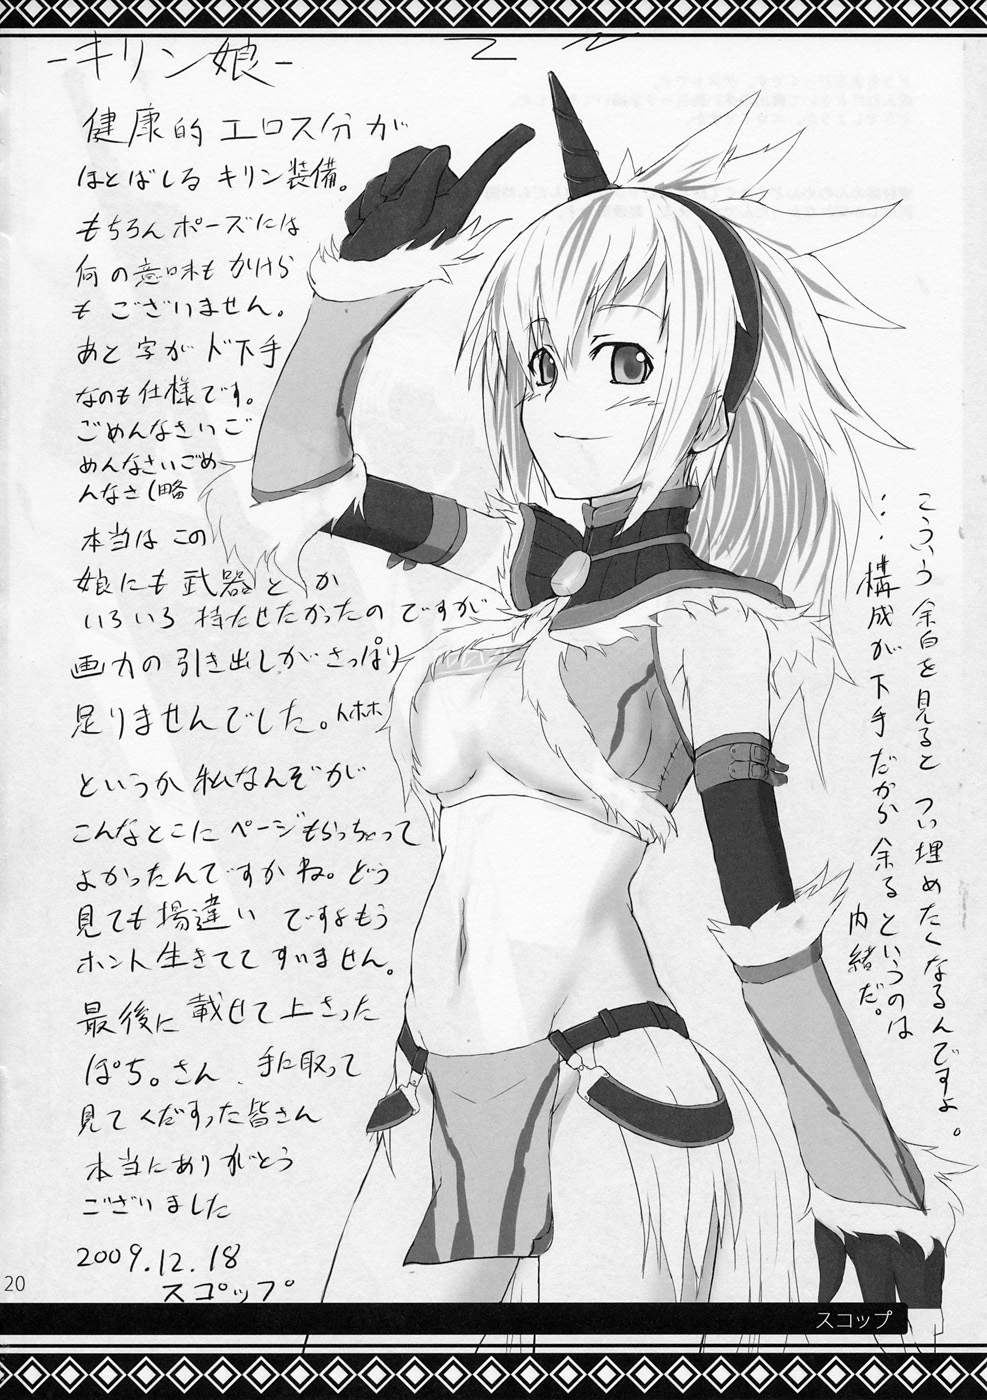 -キリン娘-
健康的エロス分が
ほとばしる キリン装備。
もちろんポーズには
何の意味もかけら
もございません。
あと字がド下手
なのも仕様です。
ごめんなさいご
めんなさいごめ
んなさ(略
本当はこの
娘にも武器とか
いろいろ持たせたかったのですが
画力の引き出しがさっぱり
足りませんでした。
というか私なんぞが
こんなとこにページもらっちゃって
よかったんですかね。どう
見ても場違いですよもう
ホント生きててすいません。
最後に載せて下さった
ぽち。さん、手に取って
見てくださった皆さん
本当にありがとう
ございました
2009.12.18
スコップ
こういう余白を見るとつい埋めたくなるんですよ。
…構成が下手だから余るというのは
内緒だ。
20
スコップ